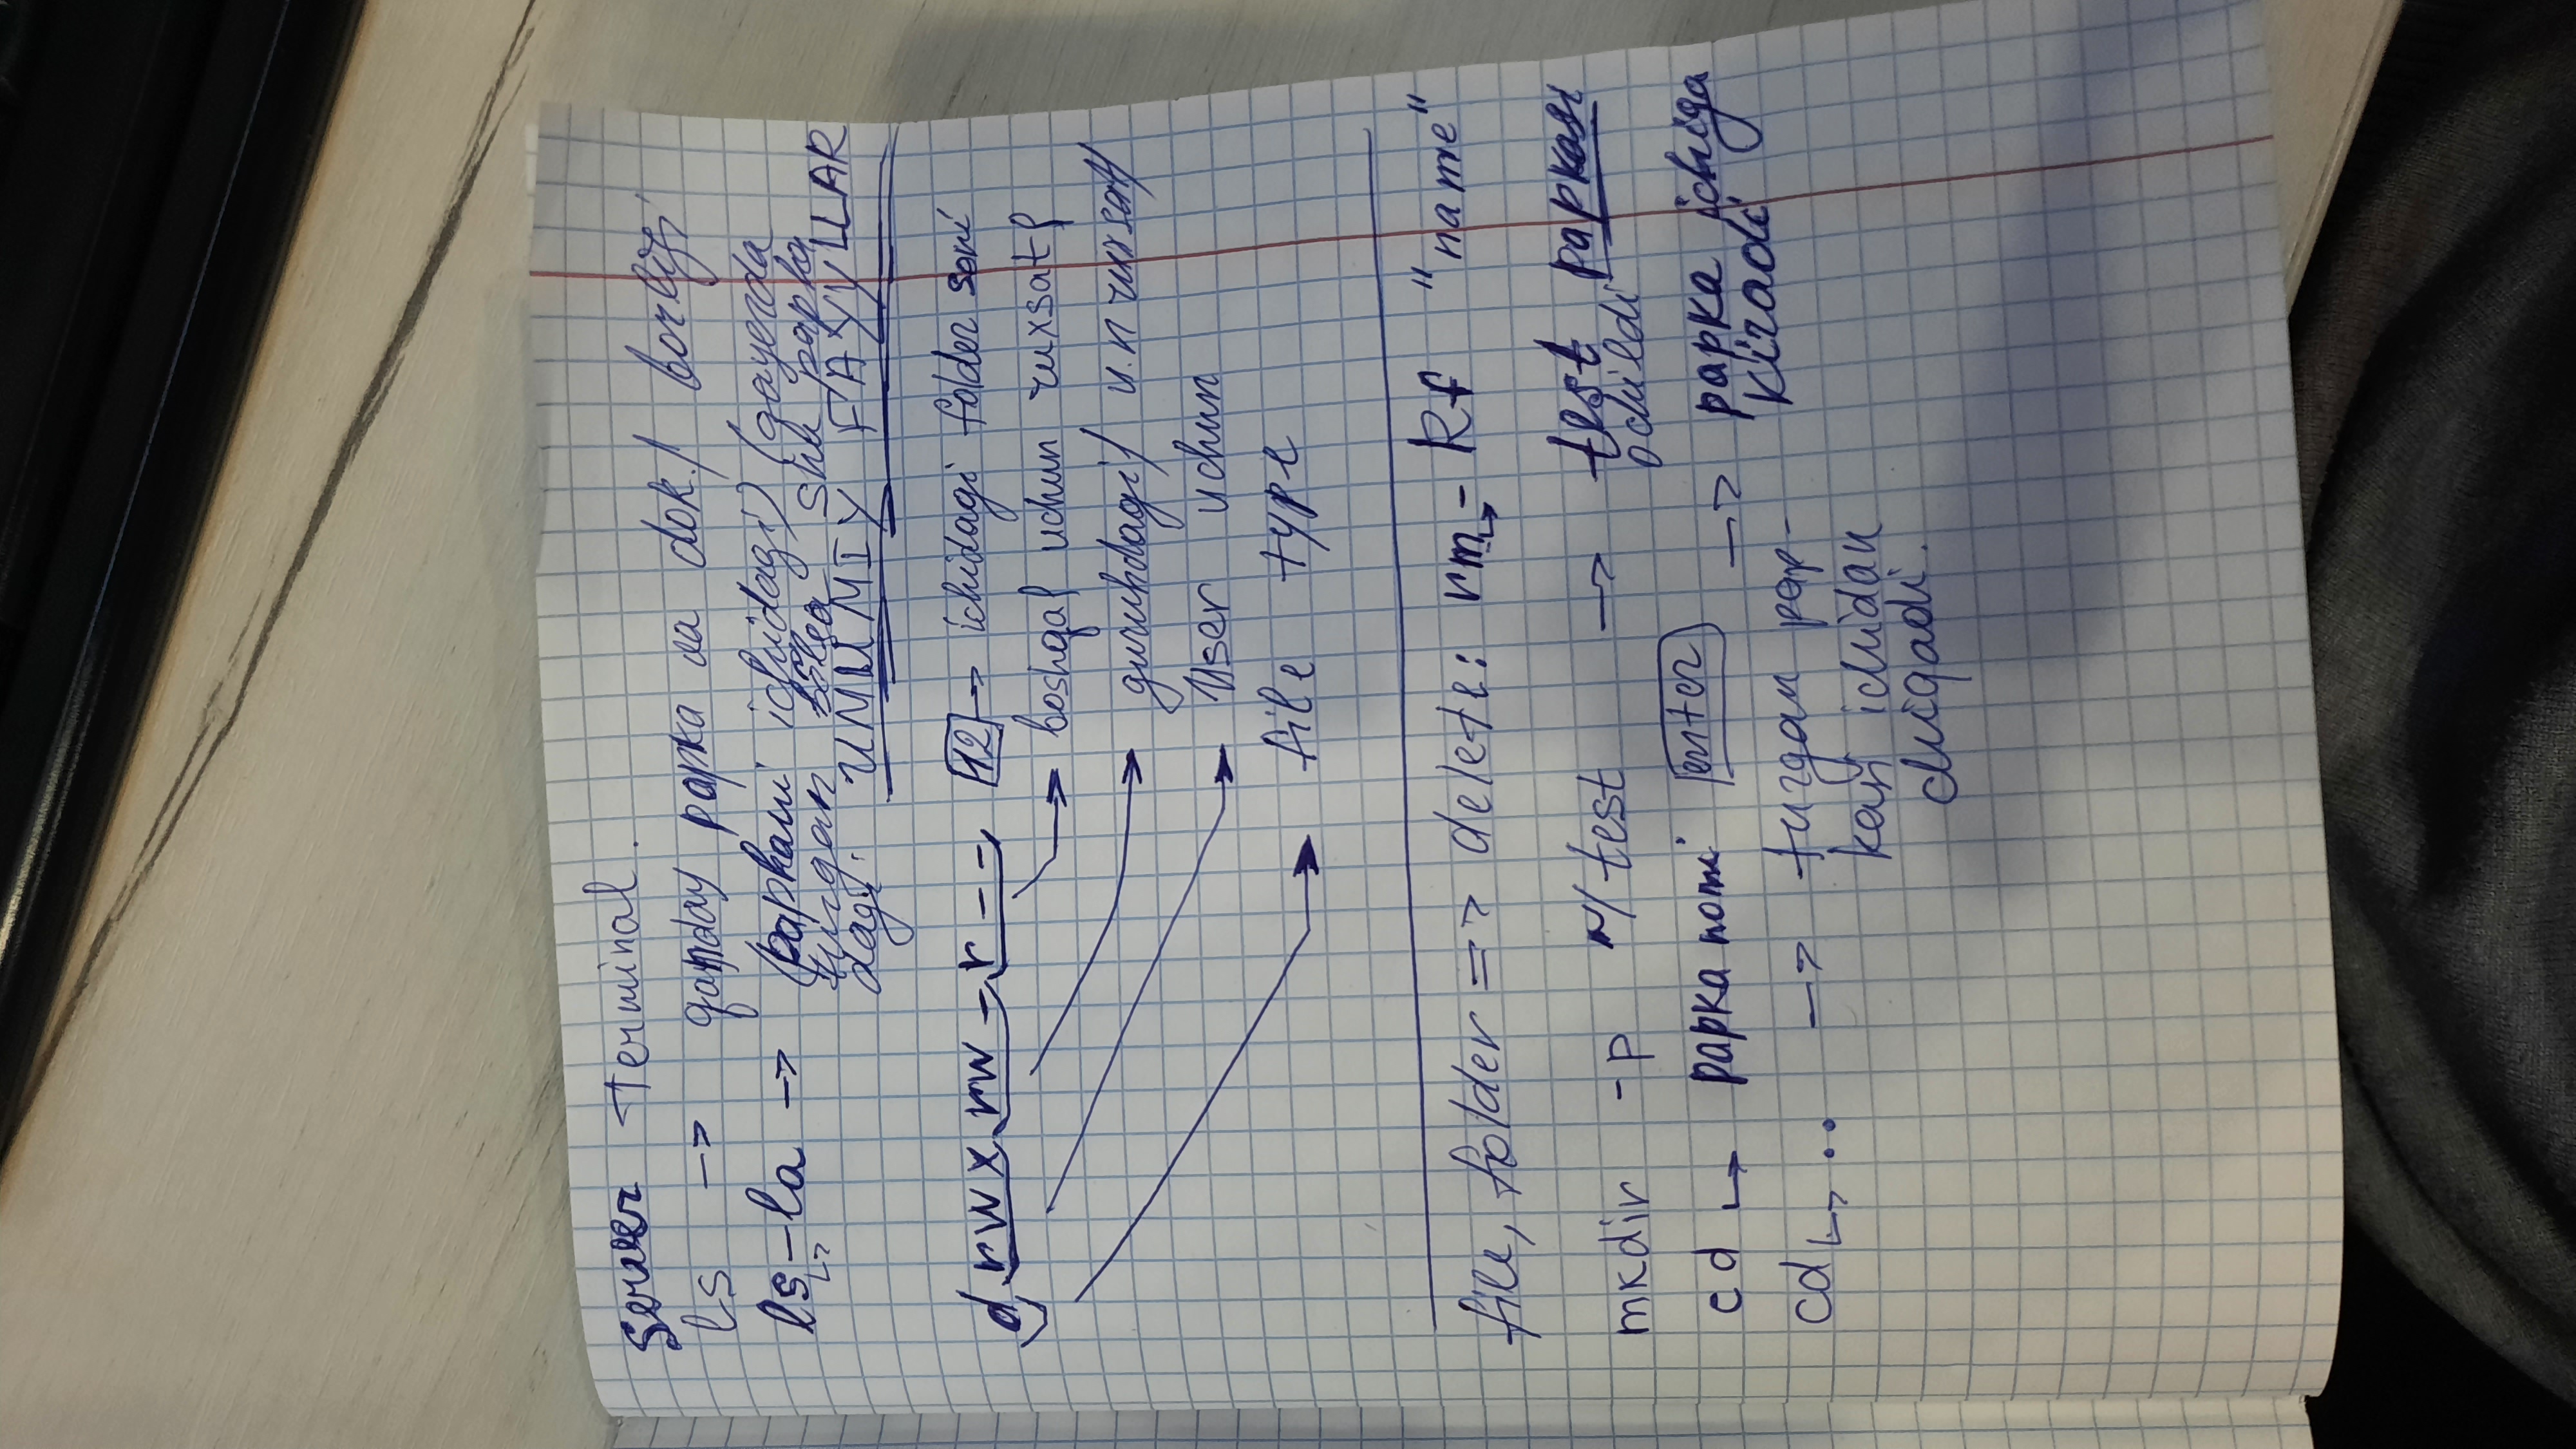 Server Terminal.
ls -> qanday papka va dok./ borligi
ls -la -> (papkani ichidagi) (qayerda
turgan bo'lsa shu papka
dagi UMUMIY FAYYLLAR
d rwx rw- r-- 12 -> ichidagi folder soni
boshqal uchun ruxsat
guruhdagi/ u.n ruxsat/
User uchun
file type
file, folder => delete: rm -Rf "name"
mkdir -p ~/test -> test papkasi
ochildi
cd papka nomi enter -> papka ichiga
kiradi
cd .. -> turgan pap-
kasi ichidan
chiqadi.